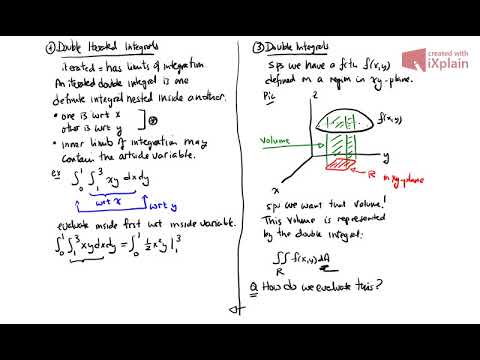 ① Double Iterated Integrals
iterated = has limits of integration
An iterated double integral is one
definite integral nested inside another.
• one is wrt x
other is wrt y
• inner limits of integration may
contain the outside variable.
ex ∫₀¹ ∫₁³ xy dx dy
wrt x
wrt y
evaluate inside first wrt inside variable.
∫₀¹ ∫₁³ xy dx dy = ∫₀¹ ½x²y |₁³
③ Double Integrals
sps we have a fctn f(x,y)
defined on a region in xy-plane.
Pic
z
f(x,y)
Volume
y
R in xy-plane
x
sps we want that volume!
This volume is represented
by the double integral:
∬ f(x,y) dA
R
Q How do we evaluate this?
created with
iXplain